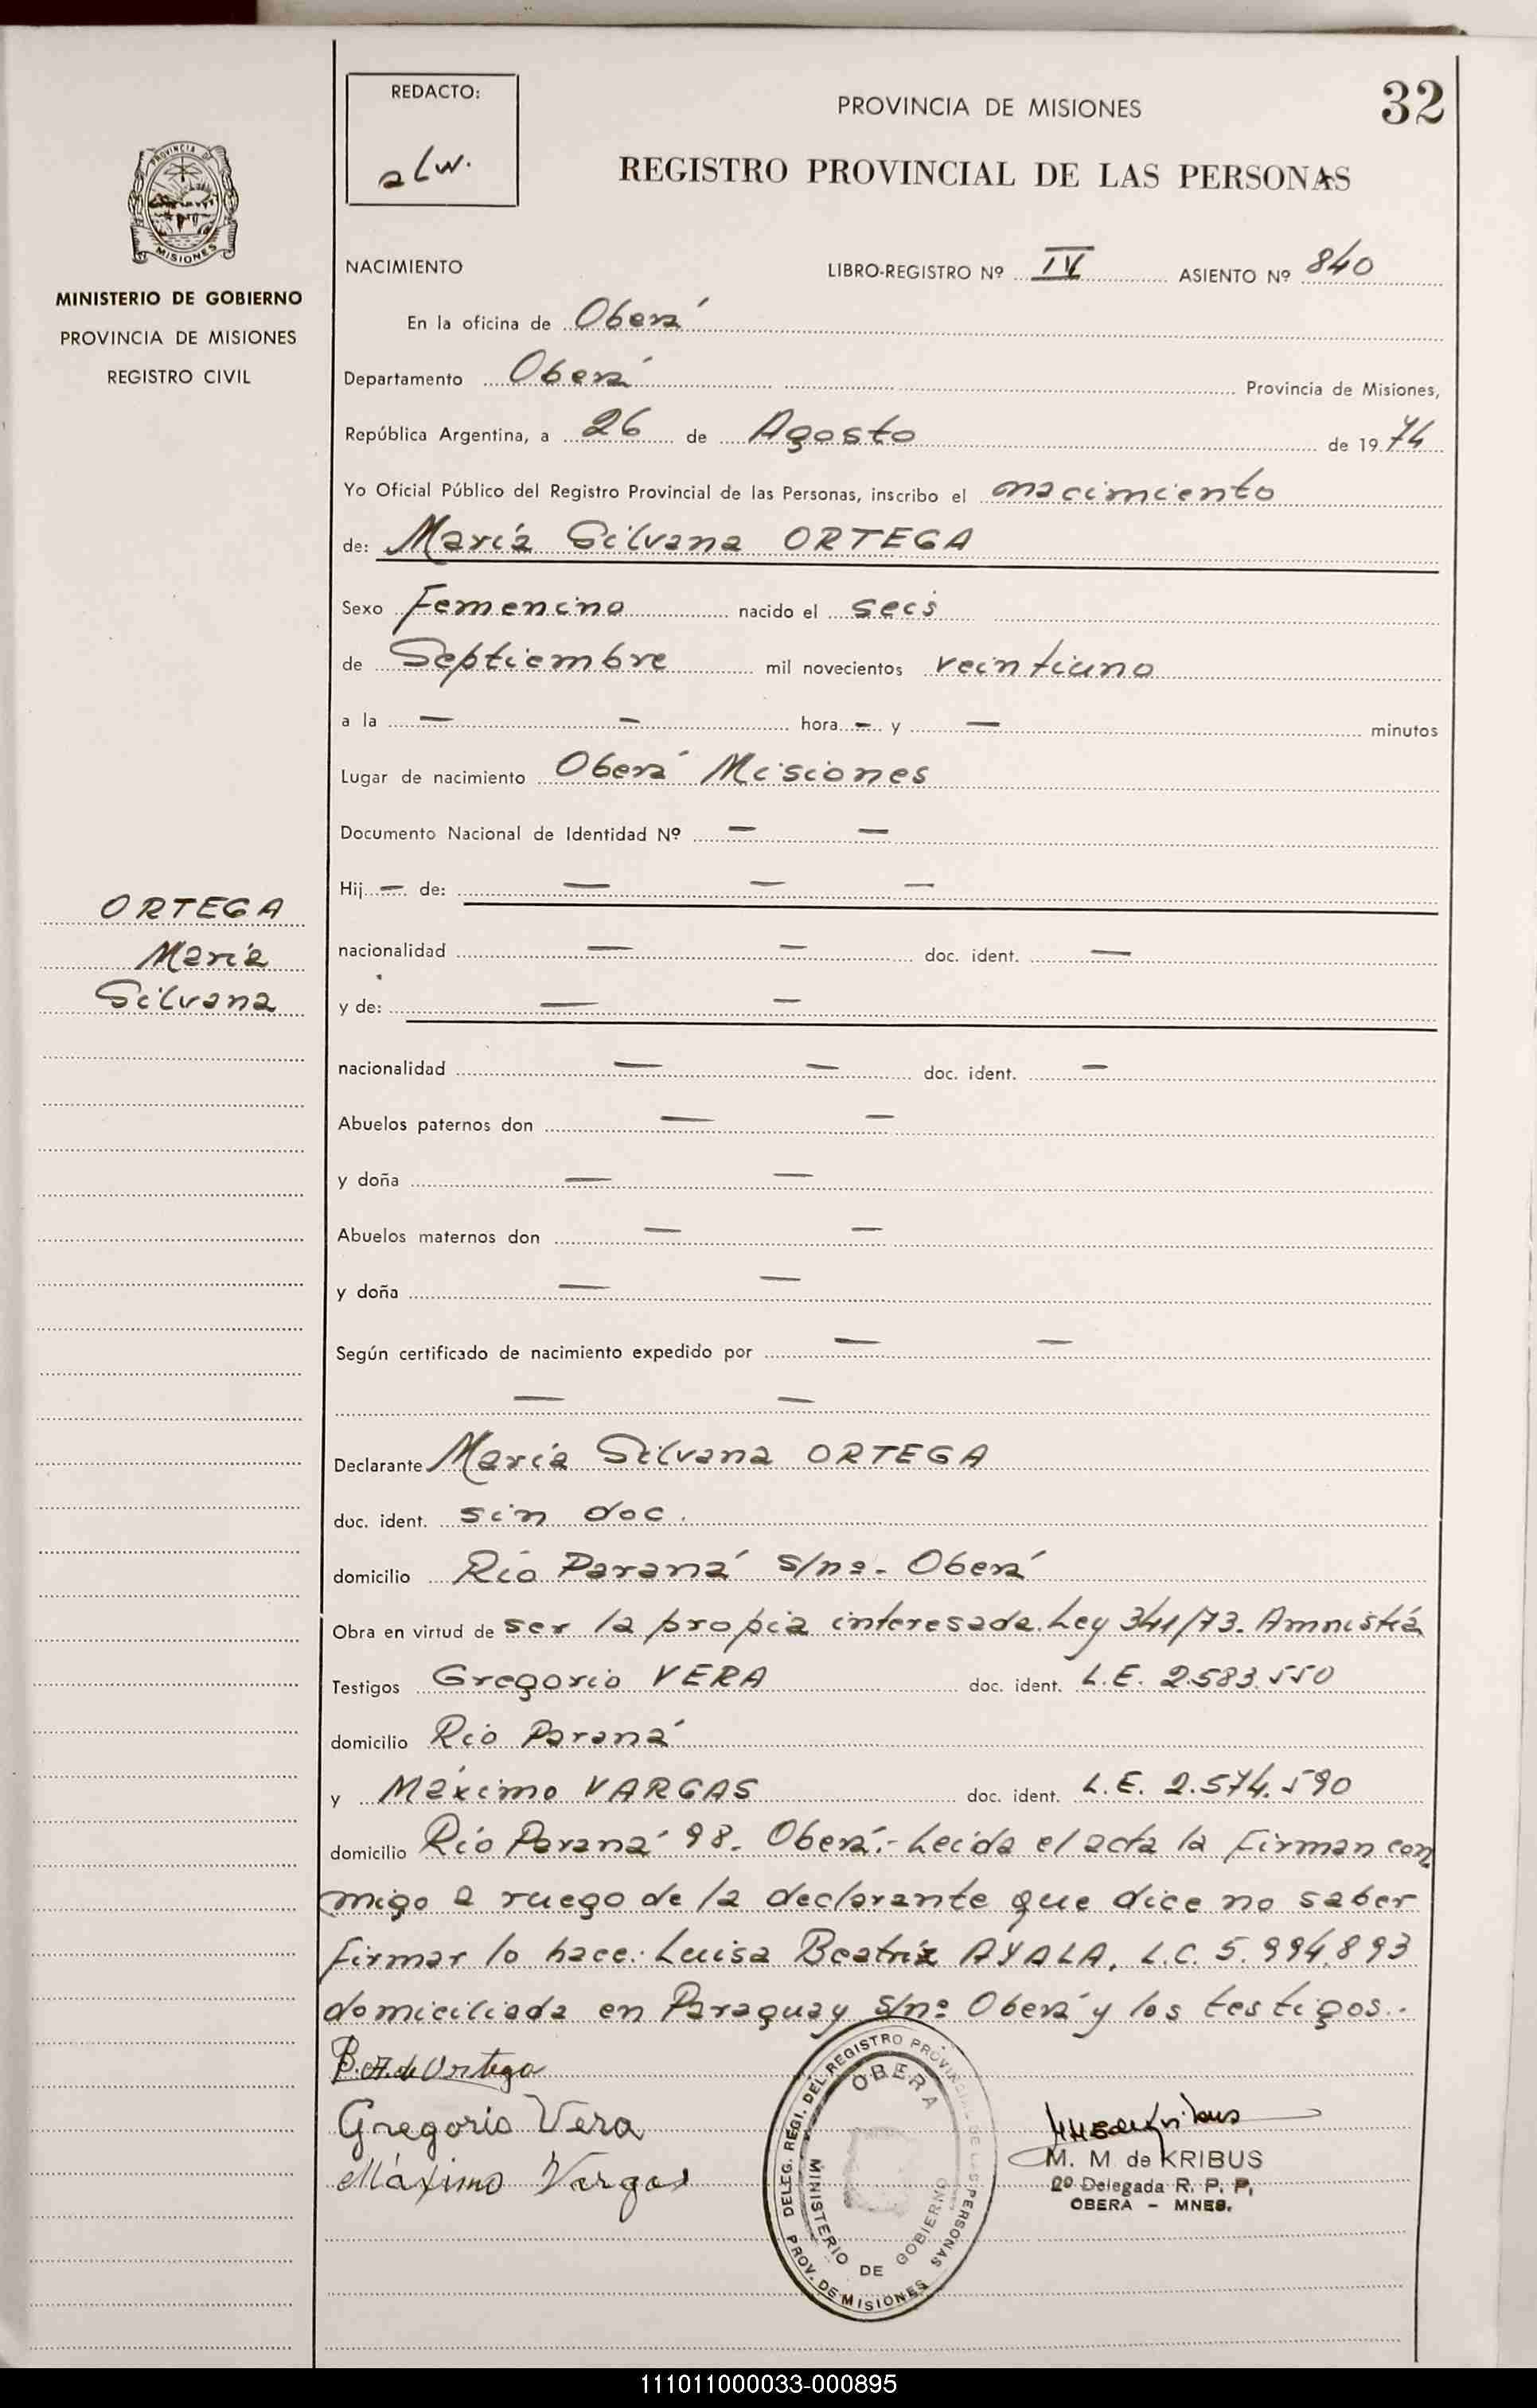 REDACTO:
alw.
PROVINCIA DE MISIONES
32
REGISTRO PROVINCIAL DE LAS PERSONAS
PROVINCIA DE
MISIONES
MINISTERIO DE GOBIERNO
PROVINCIA DE MISIONES
REGISTRO CIVIL
NACIMIENTO LIBRO-REGISTRO Nº IV ASIENTO Nº 840
En la oficina de Oberá
Departamento Oberá Provincia de Misiones,
República Argentina, a 26 de Agosto de 1974
Yo Oficial Público del Registro Provincial de las Personas, inscribo el nacimiento
de: María Silvana ORTEGA
Sexo Femenino nacido el seis
de Septiembre mil novecientos veintiuno
a la — — hora — y — minutos
Lugar de nacimiento Oberá Misiones
Documento Nacional de Identidad Nº — —
Hij — de: — — —
ORTEGA
María
Silvana
nacionalidad — — doc. ident. —
y de: — —
nacionalidad — — doc. ident. —
Abuelos paternos don — —
y doña — —
Abuelos maternos don — —
y doña — —
Según certificado de nacimiento expedido por — —
— —
Declarante María Silvana ORTEGA
doc. ident. sin doc.
domicilio Río Paraná s/nº - Oberá
Obra en virtud de ser la propia interesada. Ley 341/73. Amnistía
Testigos Gregorio VERA doc. ident. L.E. 2.583.550
domicilio Río Paraná
y Máximo VARGAS doc. ident. L.E. 2.574.590
domicilio Río Paraná 98. Oberá.- Leída el acta la firman con
migo a ruego de la declarante que dice no saber
firmar lo hace: Luisa Beatriz AYALA, L.C. 5.994.893
domiciliada en Paraguay s/nº Oberá y los testigos.-
B. A. de Ortega
Gregorio Vera
Máximo Vargas
DELEG. REGI. DEL REGISTRO PROVINCIAL DE LAS PERSONAS
OBERA
MINISTERIO DE GOBIERNO
PROV. DE MISIONES
M. M. de KRIBUS
2º Delegada R. P. P.
OBERA - MNES.
111011000033-000895